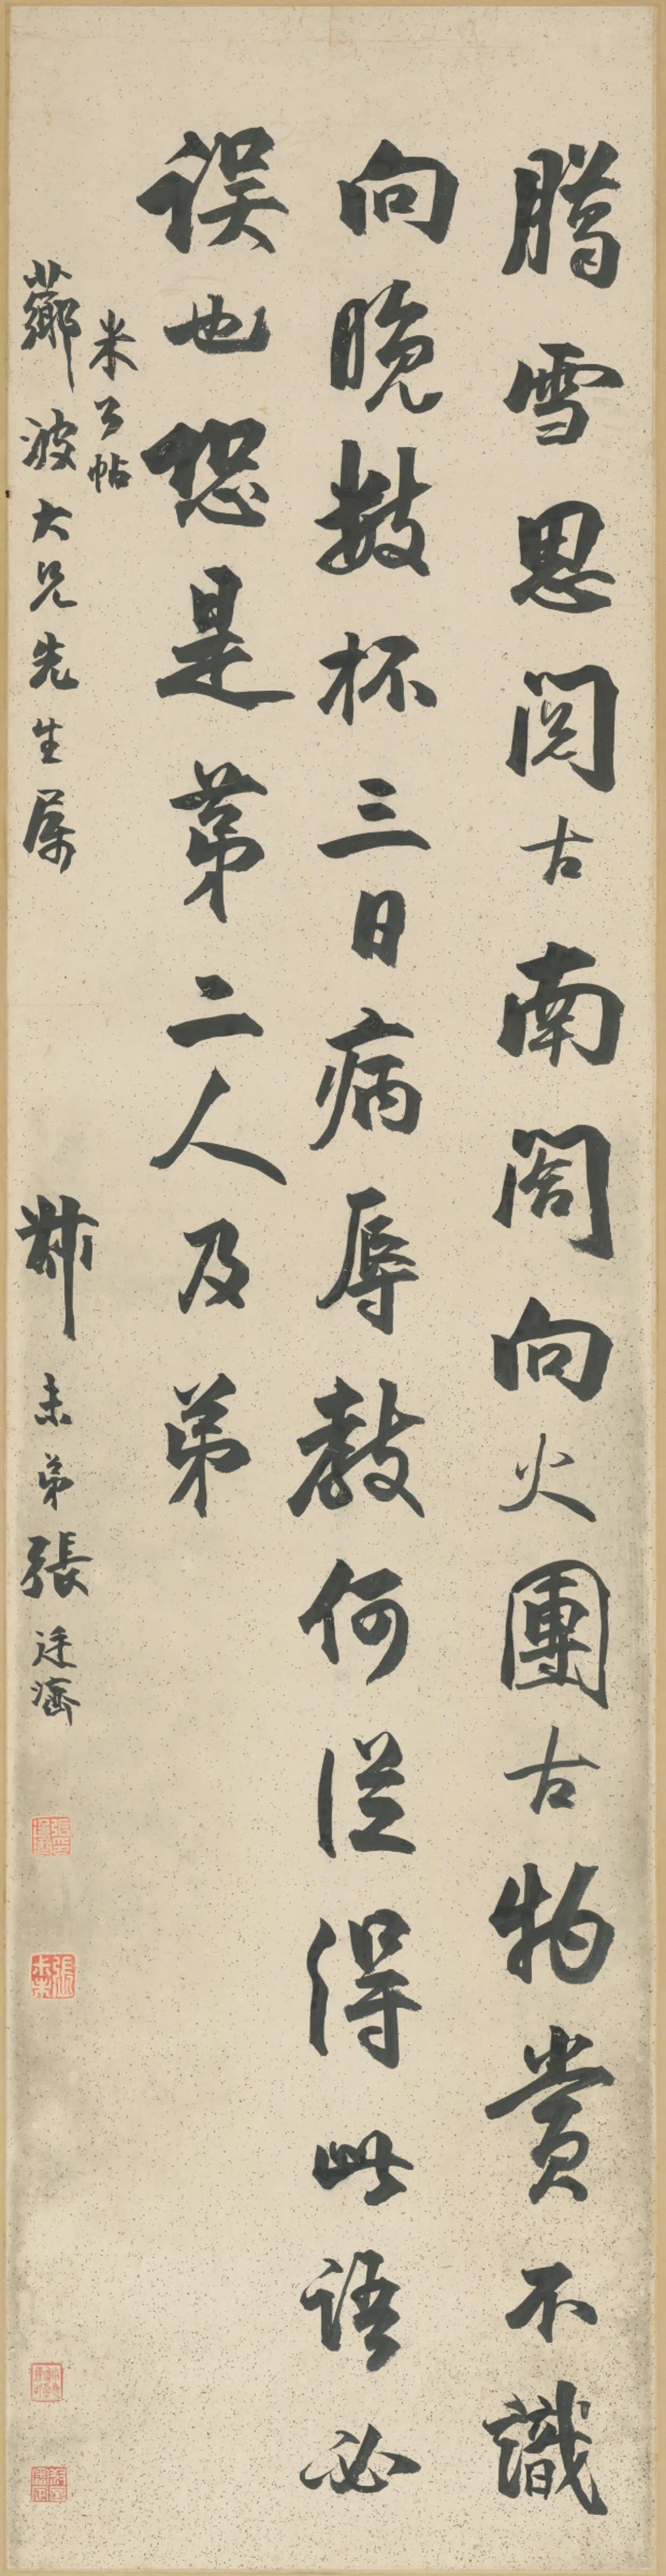 臈雪思閱古南閣向火團古物賞不識
向晚數杯三日病辱教何從得此語必
誤也恐是第二人及弟
米公帖
薌波大兄先生属
尗未弟張廷濟